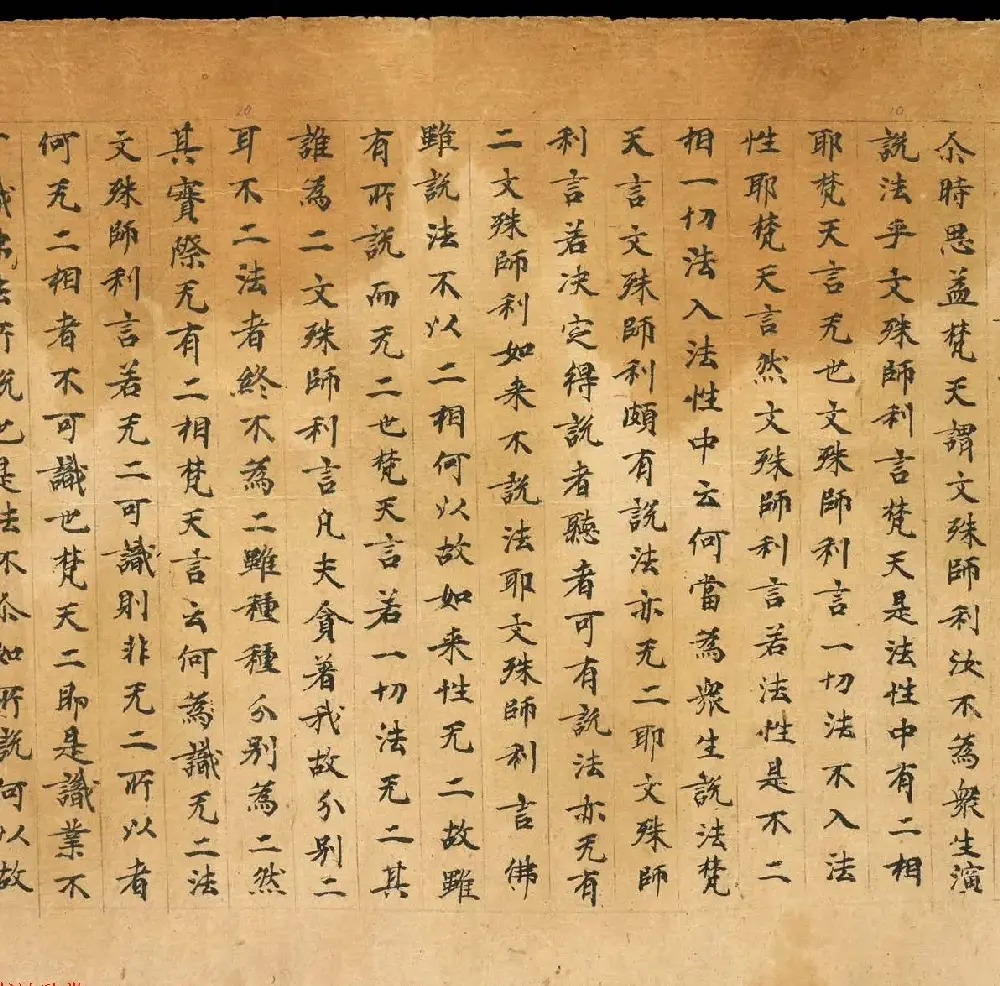 尒時思益梵天謂文殊師利汝不為衆生演
説法乎文殊師利言梵天是法性中有二相
耶梵天言无也文殊師利言一切法不入法
性耶梵天言然文殊師利言若法性是不二
相一切法入法性中云何當為衆生説法梵
天言文殊師利頗有説法亦无二耶文殊師
利言若决定得説者聽者可有説法亦无有
二文殊師利如来不説法耶文殊師利言佛
雖説法不以二相何以故如来性无二故雖
有所説而无二也梵天言若一切法无二其
誰為二文殊師利言凡夫貪著我故分别二
耳不二法者終不為二雖種種分别為二然
其實際无有二相梵天言云何為識无二法
文殊師利言若无二可識則非无二所以者
何无二相者不可識也梵天二即是識業不
所説也是法不尒如所説何以故
10
20